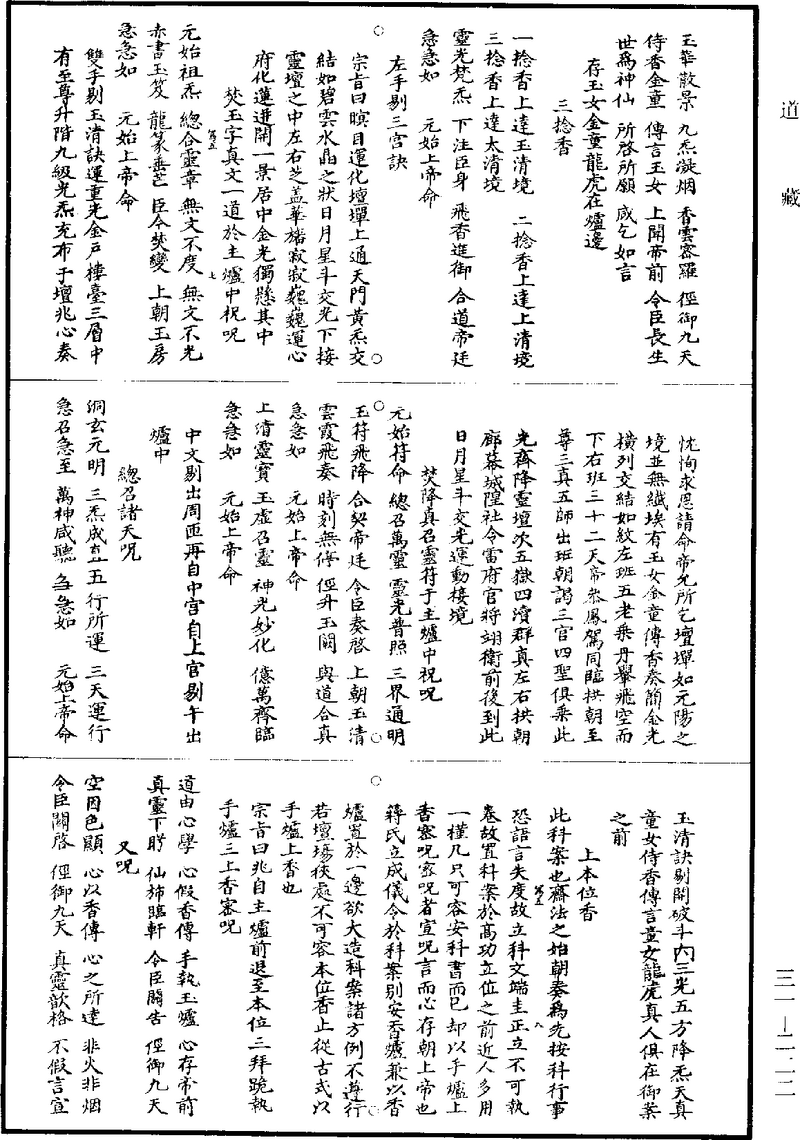 道藏
玉華散景 九炁凝烟 香雲密羅 徑御九天
侍香金童 傳言玉女 上聞帝前 令臣長生
世為神仙 所啓所願 咸乞如言
存玉女金童龍虎在爐邊
三捻香
一捻香上達玉清境 二捻香上達上清境
三捻香上達太清境
靈光梵炁 下注臣身 飛香進御 合道帝廷
急急如 元始上帝命
左手剔三宮訣
宗旨曰瞑目運化壇墠上通天門黃炁交
結如碧雲水晶之狀日月星斗交光下接
靈壇之中左右芝蓋華旛寂寂巍巍運心
府化蓮迸開一景居中金光獨懸其中
焚玉字真文一道於主爐中祝呪
元始祖炁 總合靈章 無文不度 無文不光
赤書玉笈 龍篆垂芒 臣今焚變 上朝玉房
急急如 元始上帝命
雙手剔玉清訣運重光金戶樓臺三層中
有至尊升階九級光炁充布于壇兆心奏
忱恂求恩請命帝允所乞壇墠如元陽之
境並無纖埃有玉女金童傳香奏簡金光
橫列交結如紋左班五老乘丹轝飛空而
下右班三十二天帝衆鳳駕同臨拱朝至
尊三真五師出班朝謁三官四聖俱乘此
光齊降靈壇次五嶽四瀆群真左右拱朝
廊幕城隍社令雷府官將翊衛前後到此
日月星斗交光運動接境
焚降真召靈符于主爐中祝呪
元始符命 總召萬靈 靈光普照 三界通明
玉符飛降 合契帝廷 令臣奏啓 上朝玉清
雲霞飛奏 時刻無停 徑升玉闕 與道合真
急急如 元始上帝命
上清靈寶 玉虛召靈 神光妙化 億萬齊臨
急急如 元始上帝命
中文剔出周匝再自中宮自上官剔午出
爐中
總召諸天呪
洞玄元明 三炁成真 五行所運 三天運行
急召急至 萬神咸聽 急急如 元始上帝命
玉清訣剔開破斗內三光五方降炁天真
童女侍香傳言童女龍虎真人俱在御案
之前
上本位香
此科案也齋法之始朝奏為先按科行事
恐語言失度故立科文端圭正立不可執
卷故置科案於高功立位之前近人多用
一槿几只可容安科書而已却以手爐上
香密呪密呪者宣呪言而心存朝上帝也
蔣氏立成儀令於科案別安香爐兼以香
爐置於一邊欲大造科案諸方例不遵行
若壇場狹處不可容本位香止從古式以
手爐上香也
宗旨曰兆自主爐前退至本位三拜跪執
手爐三上香密呪
道由心學 心假香傳 手執玉爐 心存帝前
真靈下盻 仙旆臨軒 令臣關告 徑御九天
又呪
空因色顯 心以香傳 心之所達 非火非烟
令臣關啓 徑御九天 真靈歆格 不假言宣
三一—二一二